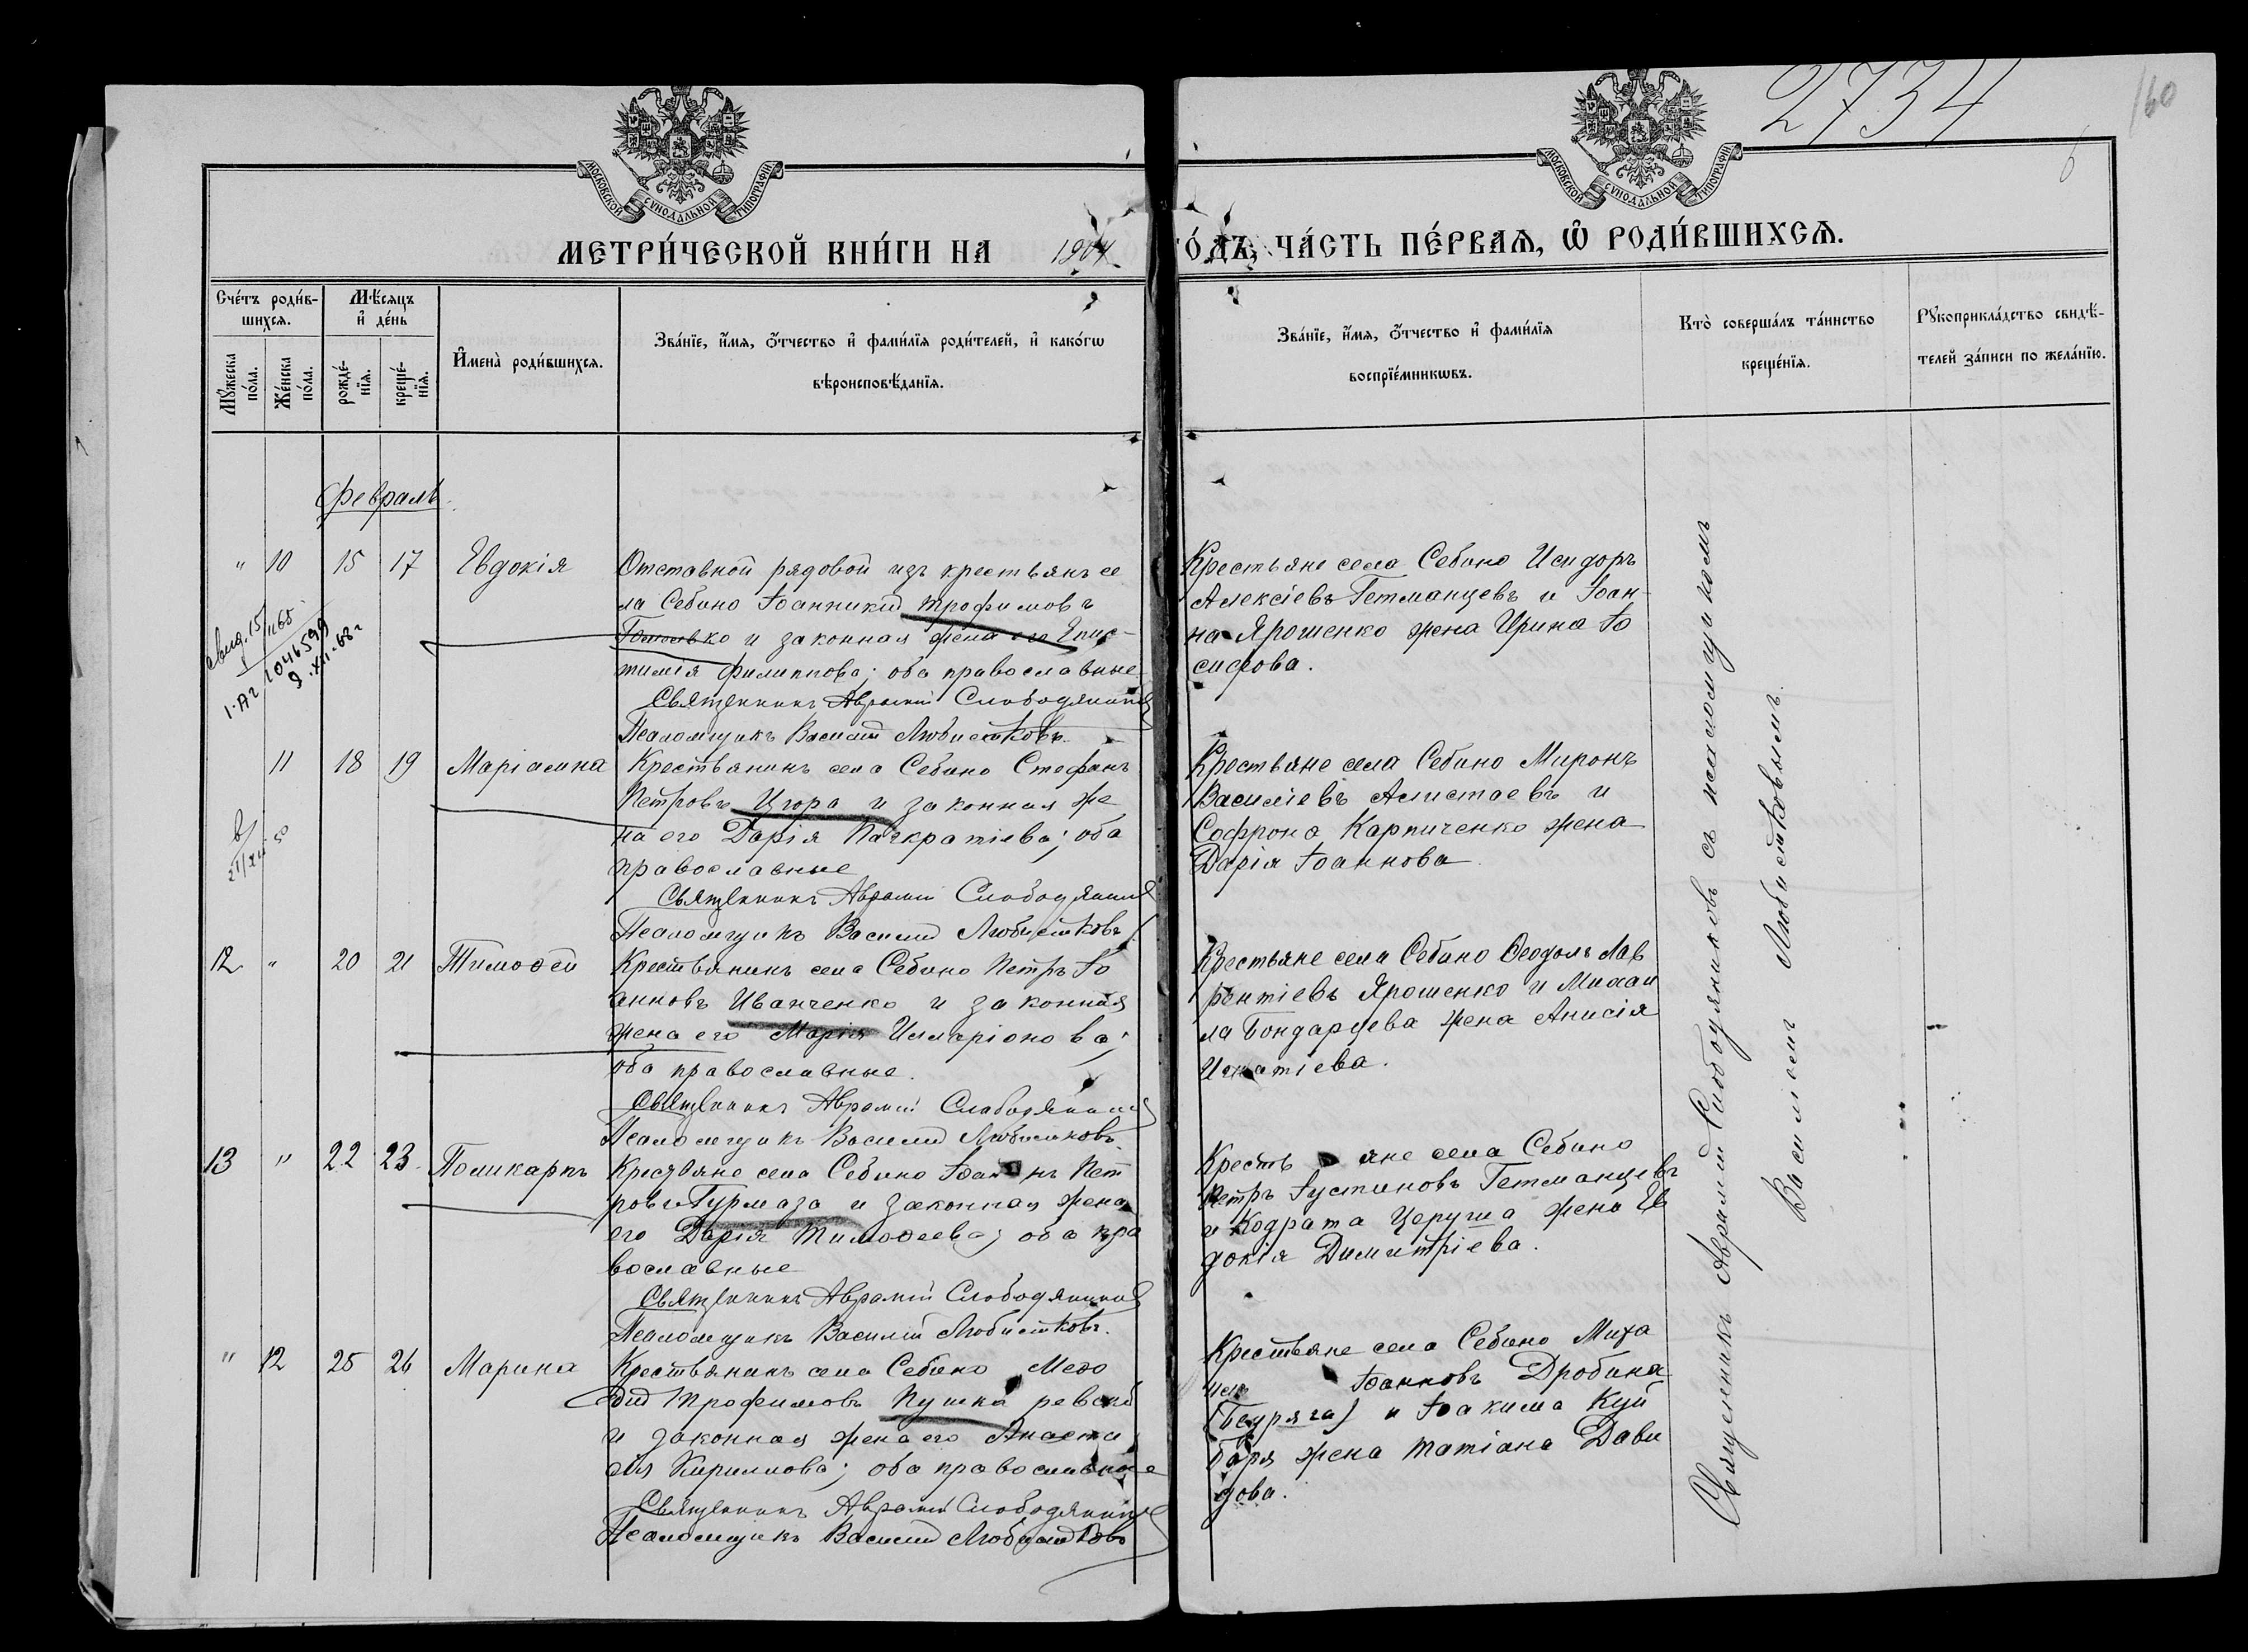 2734
160
6
МОСКОВСКОЙ СѴНОДАЛЬНОЙ ТИПОГРАФІИ
МОСКОВСКОЙ СѴНОДАЛЬНОЙ ТИПОГРАФІИ
МЕТРИ́ЧЕСКОЙ КНИ́ГИ НА 1904
ГО́ДЪ, ЧА́СТЬ ПЕ́РВАѦ, Ѽ РОДИ́ВШИХСѦ.
Сче́тъ роди́вшихсѧ.
Мꙋ́жеска по́ла.
Же́нска по́ла.
Мѣ́сѧцъ и҆ де́нь
рожде́нїѧ.
креще́нїѧ.
И҆мена̀ роди́вшихсѧ.
Зва́нїе, и҆́мѧ, ѻ҆́тчество и҆ фами́лїѧ роди́телей, и҆ како́гѡ
вѣроисповѣ́данїѧ.
Зва́нїе, и҆́мѧ, ѻ҆́тчество и҆ фами́лїѧ
воспрїе́мникѡвъ.
Кто̀ соверша́лъ та́инство
креще́нїѧ.
Рꙋкоприкла́дство свидѣ́-
телей за́писи по жела́нїю.
Февраль.
" 10 15 17 Евдокія
Отставной рядовой изъ крестьянъ се
ла Себино Іоанникій Трофимовъ
и законная жена его Епис-
тимія Филиппова; оба православные
Священникъ Аврамій Слободяникъ
Псаломщикъ Василій Любистковъ.
Крестьяне села Себино Исидоръ
Алексіевъ Гетманцевъ и Іоан-
на Ярошенко жена Ирина Іо
сифова.
1046599
9.XII-68 г
11 18 19 Маріамна
Крестьянинъ села Себино Стефанъ
Петровъ Цгора и законная же
на его Дарія Панкратіева; оба
православные
Священникъ Аврамій Слободяникъ
Псаломщикъ Василій Любистковъ
Крестьяне села Себино Миронъ
Василіевъ Алистаевъ и
Софрона Карпиченко жена
Дарія Іоаннова
12 " 20 21 Тимоѳей
Крестьянинъ села Себино Петръ Іо
анновъ Иванченко и законная
жена его Марія Илларіонова;
оба православные.
Священникъ Аврамій Слободяникъ
Псаломщикъ Василій Любистковъ.
Крестьяне села Себино Ѳеодолъ Лав
рентіевъ Ярошенко и Михаи
ла Бондарцева жена Анисія
Игнатіева.
13 " 22 23. Поликарпъ
Крестьяне села Себино Іоаннъ Пет
ровъ Гурмаза и законная жена
его Дарія Тимоѳеева; оба пра
вославные
Священникъ Аврамій Слободяникъ
Псаломщикъ Василій Любистковъ.
Крестьяне села Себино
Петръ Іустиновъ Гетманцевъ
и Кодрата Церуша жена Ев
докія Димитріева.
" 12 25 26 Марина
Крестьянинъ села Себино Меѳо
дій Трофимовъ Пушкаревскій
и законная жена его Анаста
сія Кириллова; оба православные
Священникъ Аврамій Слободяникъ
Псаломщикъ Василій Любистковъ
Крестьяне села Себино Миха
илъ Іоанновъ Дробина
и Іоакима Куй
баря жена Татіана Дави
дова.
Священникъ Аврамій Слободяниковъ съ псаломщикомъ
Василіемъ Любистковымъ.